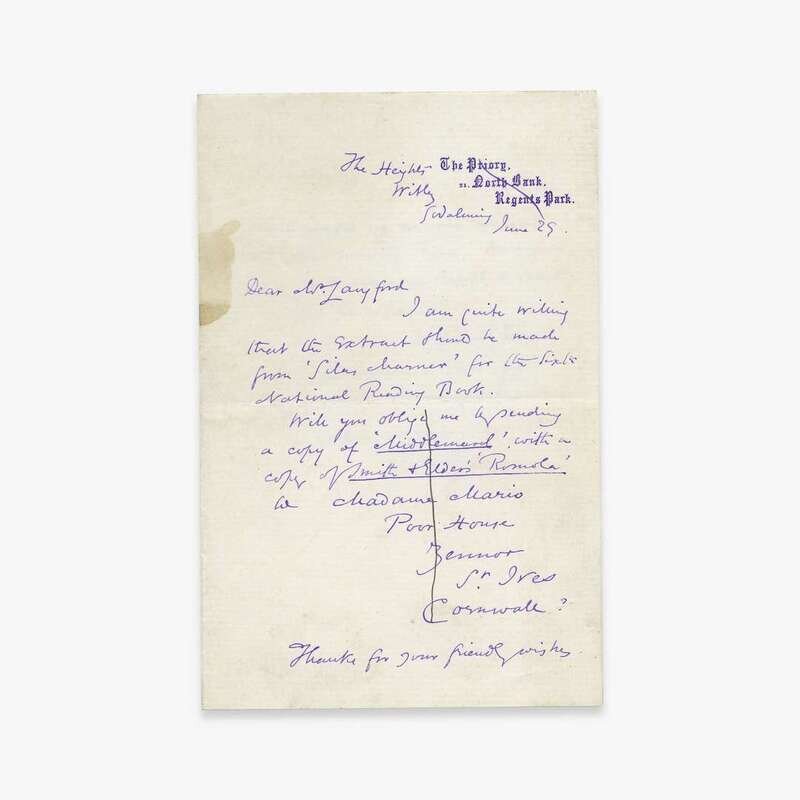 The Heights
Witley
Godalming
The Priory,
21. North Bank,
Regents Park.
June 29.
Dear Mr. Langford
I am quite willing
that the extract should be made
from 'Silas Marner' for the Sixth
National Reading Book.
Will you oblige me by sending
a copy of 'Middlemarch' with a
copy of Smith & Elder's 'Romola'
to Madame Mario
Poor House
Zennor
St Ives
Cornwall?
Thanks for your friendly wishes.